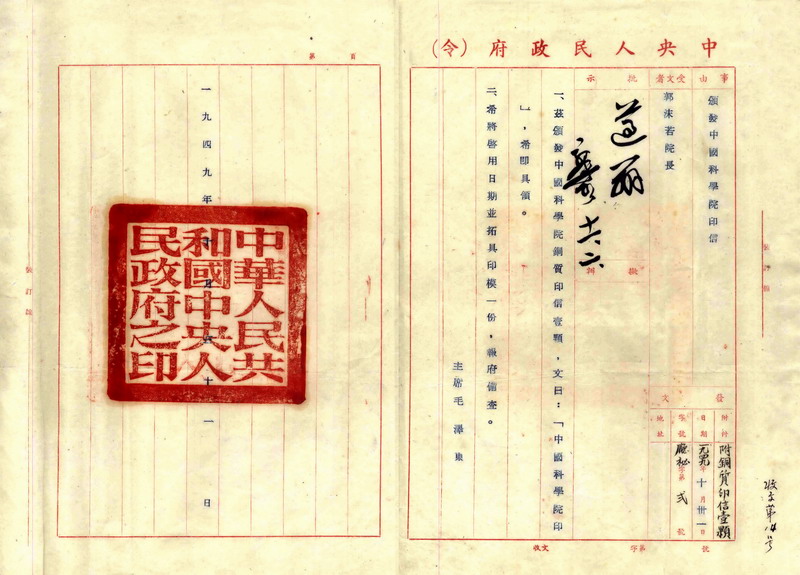 中央人民政府（令）
事由
頒發中國科學院印信
受文者
郭沫若院長
批示
擬辦
發文
附件
附銅質印信壹顆
日期
一九四九年十月卅一日
字號
廳秘字第弍號
地址
一、茲頒發中國科學院銅質印信壹顆，文曰：「中國科學院印
」，希即具領。
二、希將啓用日期並拓具印模一份，報府備查。
主席毛澤東
收文 字第 號
收文第14號
裝訂線
第 頁
一九四九年十月三十一日
中華人民共
和國中央人
民政府之印
裝訂線